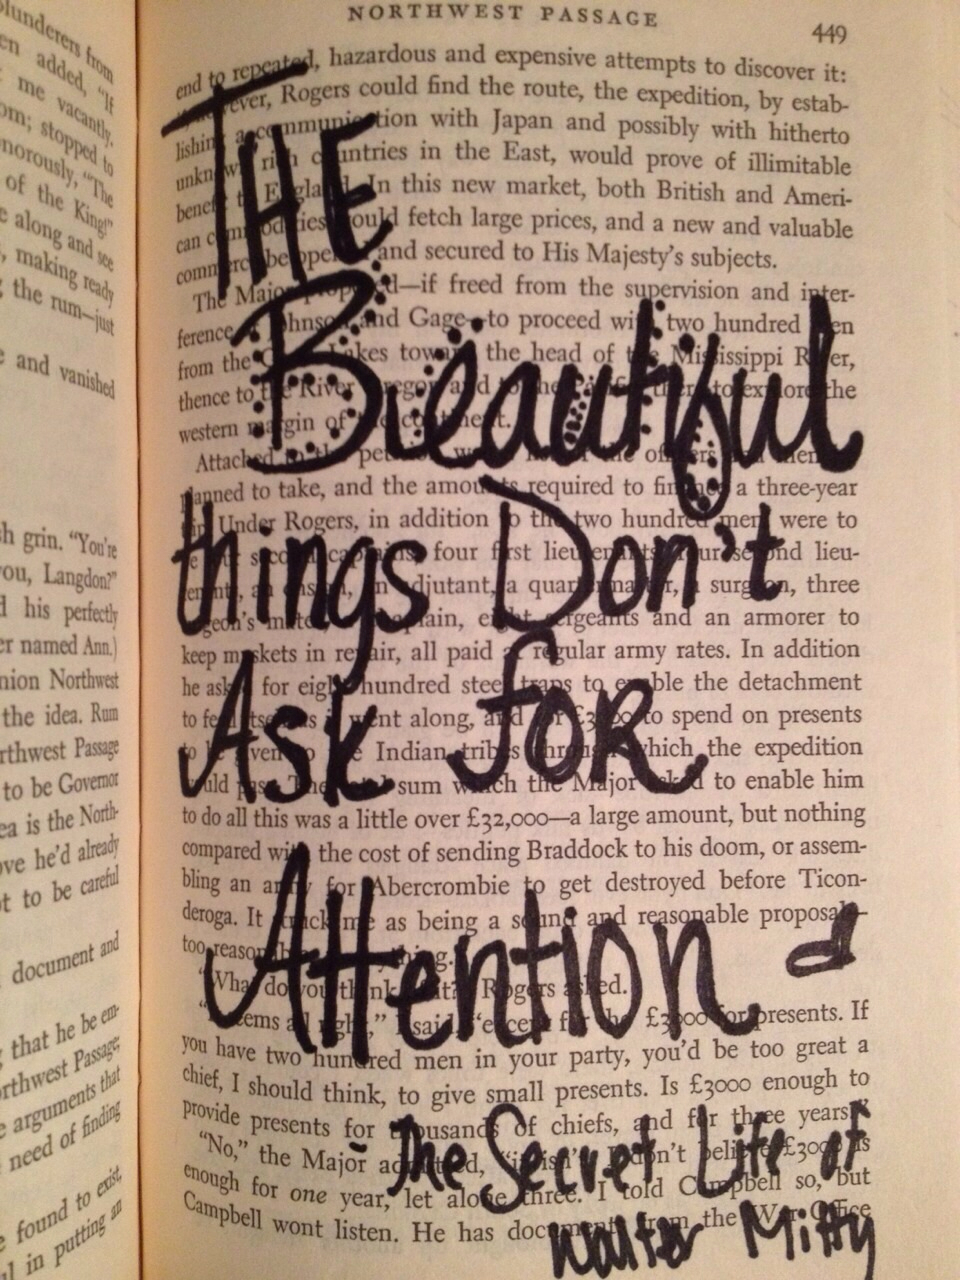 NORTHWEST PASSAGE
449
plunderers from
added, "If
me vacantly.
stopped to
"The
of the King!"
along and see
making ready
the rum—just
and vanished
grin. "You're
Langdon?"
his perfectly
named Ann.)
Northwest
the idea. Rum
Passage
to be Governor
is the North-
he'd already
to be careful
document and
that he be em-
Passage;
arguments that
need of finding
found to exist,
in putting an
end to repeated, hazardous and expensive attempts to discover it:
Rogers could find the route, the expedition, by estab-
communication with Japan and possibly with hitherto
countries in the East, would prove of illimitable
England. In this new market, both British and Ameri-
can commodities would fetch large prices, and a new and valuable
and secured to His Majesty's subjects.
The Major proposed—if freed from the supervision and inter-
ference Johnson and Gage—to proceed with two hundred men
from the Lakes toward the head of the Mississippi River,
thence to the River Oregon and to the to explore the
western margin of the continent.
Attached to the officers and men
planned to take, and the amounts required to finance a three-year
Under Rogers, in addition to the two hundred men were to
four first lieutenants, four second lieu-
adjutant, a quartermaster, a surgeon, three
eight sergeants and an armorer to
keep muskets in repair, all paid at regular army rates. In addition
he asked for eight hundred steel traps to enable the detachment
to feed itself as it went along, and for £3000 to spend on presents
to be given to the Indian tribes through which the expedition
would pass. The sum which the Major asked to enable him
to do all this was a little over £32,000—a large amount, but nothing
compared with the cost of sending Braddock to his doom, or assem-
bling an army for Abercrombie to get destroyed before Ticon-
deroga. It struck me as being a sound and reasonable proposal—
too reasonable
"What do you think of it?" Rogers asked.
"Seems all right," I said, "except for the £3000 for presents. If
you have two hundred men in your party, you'd be too great a
chief, I should think, to give small presents. Is £3000 enough to
provide presents for thousands of chiefs, and for three years?"
"No," the Major admitted, "it isn't. I don't believe £3000 is
enough for one year, let alone three. I told Campbell so, but
Campbell wont listen. He has from the War Office
THE
Beautiful
things Don't
Ask for
Attention
- The Secret Life of
Walter Mitty